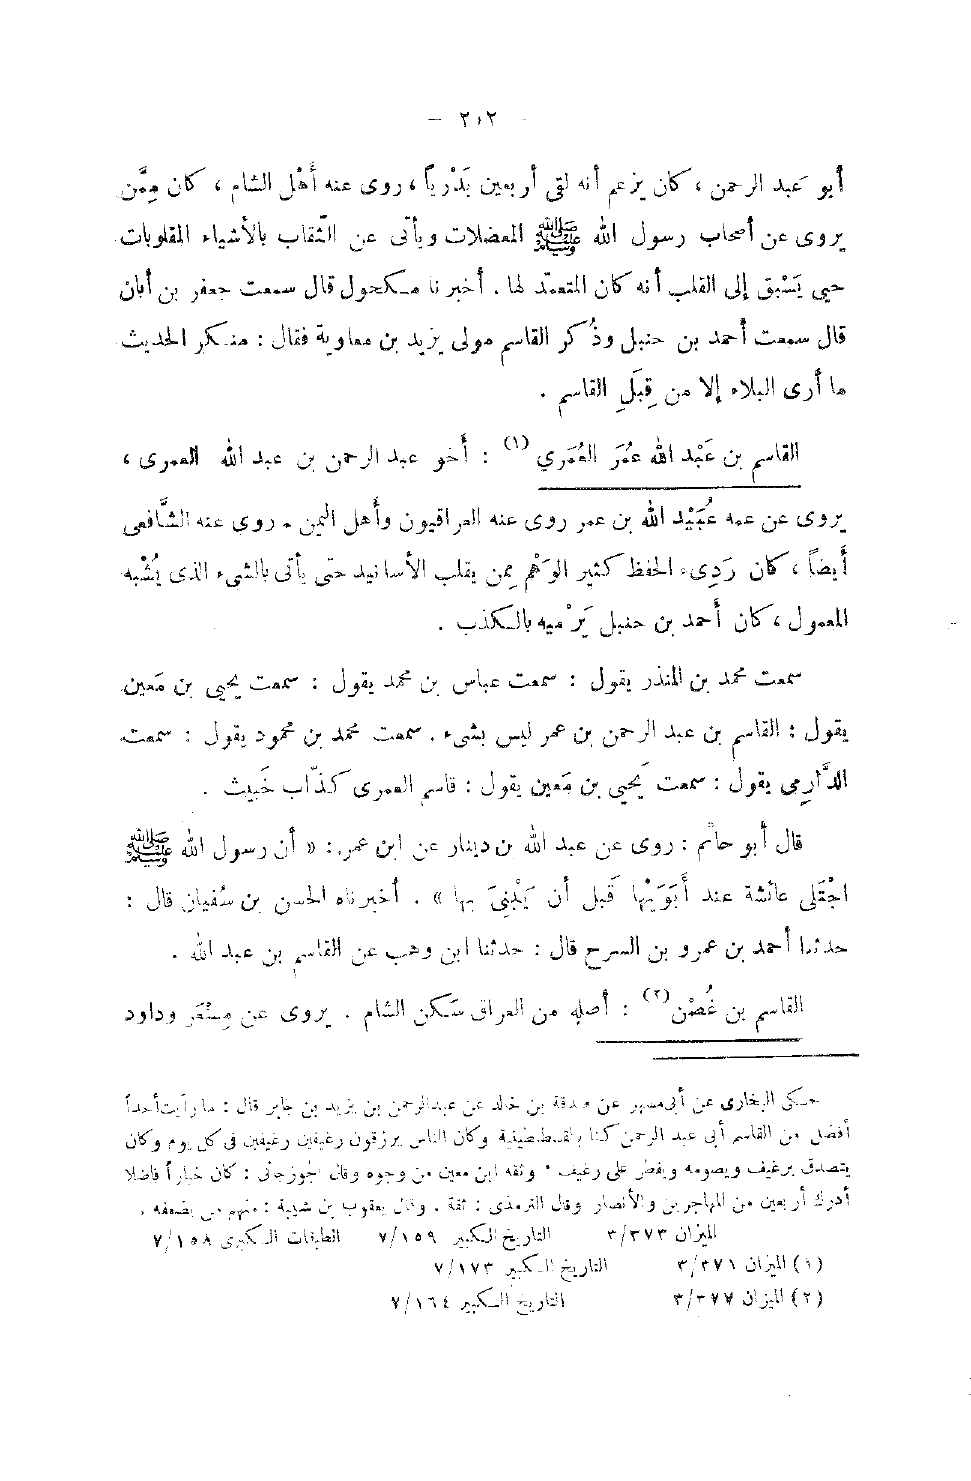 — ٢١٢ —
أبو عبد الرحمن ، كان يزعم أنه لقى أربعين بَدْرياً ، روى عنه أَهْل الشام ، كان مِمَّن
يروى عن أصحاب رسول الله ﷺ المعضلات ويأتى عن الثقاب بالأشياء المقلوبات
حتى يَسْبق إلى القلب أنه كان المتعمّد لها . أخبرنا مكحول قال سمعت جعفر بن أبان
قال سمعت أحمد بن حنبل وذُكر القاسم مولى يزيد بن معاوية فقال : منكر الحديث
ما أرى البلاء إلا من قِبَلِ القاسم .
القاسم بن عَبْد الله عُمَر العُمَرِي (١) : أخو عبد الرحمن بن عبد الله العمرى ،
يروى عن عمه عُبَيْد الله بن عمر روى عنه العراقيون وأَهل اليمن . روى عنه الشَّافعى
أَيضاً ، كان رَدِىء الحفظ كثير الوَهْم مِمن يقلب الأسانيد حتى يأتى بالشىء الذى يُشْبه
المعمول ، كان أَحمد بن حنبل يَرْميه بالكذب .
سمعت محمد بن المنذر يقول : سمعت عباس بن محمد يقول : سمعت يحيى بن مَعين
يقول : القاسم بن عبد الرحمن بن عمر ليس بشىء . سمعت محمد بن محمود يقول : سمعت
الدَّارِمى يقول : سمعت يَحيى بن مَعين يقول : قاسم العمرى كذّاب خَبيث .
قال أبو حاتم : روى عن عبد الله بن دينار عن ابن عمر : « أن رسول الله ﷺ
اجْتَلى عائشة عند أَبَوَيْها قَبل أن يَبْنِىَ بها » . أخبرناه الحسن بن سُفيان قال :
حدثنا أحمد بن عمرو بن السرح قال : حدثنا ابن وهب عن القاسم بن عبد الله .
القاسم بن غُصْن (٢) : أصله من العراق سَكن الشام . يروى عن مِسْعَر وداود
حكى البخارى عن أبى مسهر عن صدقة بن خالد عن عبدالرحمن بن يزيد بن جابر قال : ما رأيت أحداً
أفضل من القاسم أبى عبد الرحمن كنا بالقسطنطينية وكان الناس يرزقون رغيفين رغيفين فى كل يوم وكان
يتصدق برغيف ويصومه ويفطر على رغيف • وثقه ابن معين من وجوه وقال الجوزجانى : كان خياراً فاضلا
أدرك أربعين من المهاجرين والأنصار وقال الترمذى : ثقة . وقال يعقوب بن شيبة : منهم من يضعفه .
الميزان ٣/٣٧٣ التاريخ الكبير ٧/١٥٩ الطبقات الكبرى ٧/١٥٨
(١) الميزان ٣/٣٧١ التاريخ الكبير ٧/١٧٣
(٢) الميزان ٣/٣٧٧ التاريخ الكبير ٧/١٦٤